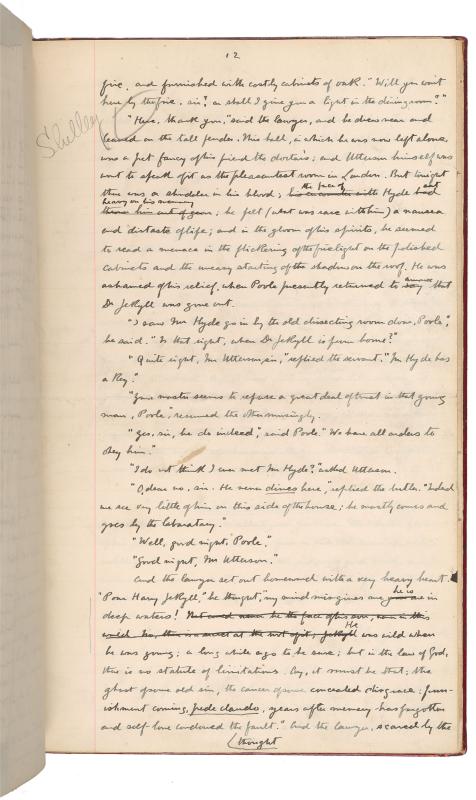 12
fire, and furnished with costly cabinets of oak. "Will you wait
here by the fire, sir? or shall I give you a light in the dining room?"
"Here, thank you," said the lawyer, and he drew near and
leaned on the tall fender. This hall, in which he was now left alone,
was a pet fancy of his friend the doctor's; and Utterson himself was
wont to speak of it as the pleasantest room in London. But tonight
there was a shudder in his blood; his encounter with the face of Hyde had sat
heavy on his memory
thrown him out of gear; he felt (what was rare with him) a nausea
and distaste of life; and in the gloom of his spirits, he seemed
to read a menace in the flickering of the firelight on the polished
cabinets and the uneasy starting of the shadow on the roof. He was
ashamed of his relief, when Poole presently returned to say announce that
Dr Jekyll was gone out.
"I saw Mr Hyde go in by the old dissecting room door, Poole,"
he said. "Is that right, when Dr Jekyll is from home?"
"Quite right, Mr Utterson, sir," replied the servant. "Mr Hyde has
a key."
"Your master seems to repose a great deal of trust in that young
man, Poole," resumed the other musingly.
"Yes, sir, he do indeed," said Poole. "We have all orders to
obey him."
"I do not think I ever met Mr Hyde?" asked Utterson.
"O, dear no, sir. He never dines here," replied the butler. "Indeed
we see very little of him on this side of the house; he mostly comes and
goes by the laboratory."
"Well, good night, Poole."
"Good night, Mr Utterson."
And the lawyer set out homeward with a very heavy heart.
"Poor Harry Jekyll," he thought, "my mind misgives me he is in
deep waters! He was wild when
he was young; a long while ago to be sure; but in the law of God,
there is no statute of limitations. Ay, it must be that; the
ghost of some old sin, the cancer of some concealed disgrace: pun-
ishment coming, pede claudo, years after memory has forgotten
and self-love condoned the fault." And the lawyer, scared by the
thought
Shelley